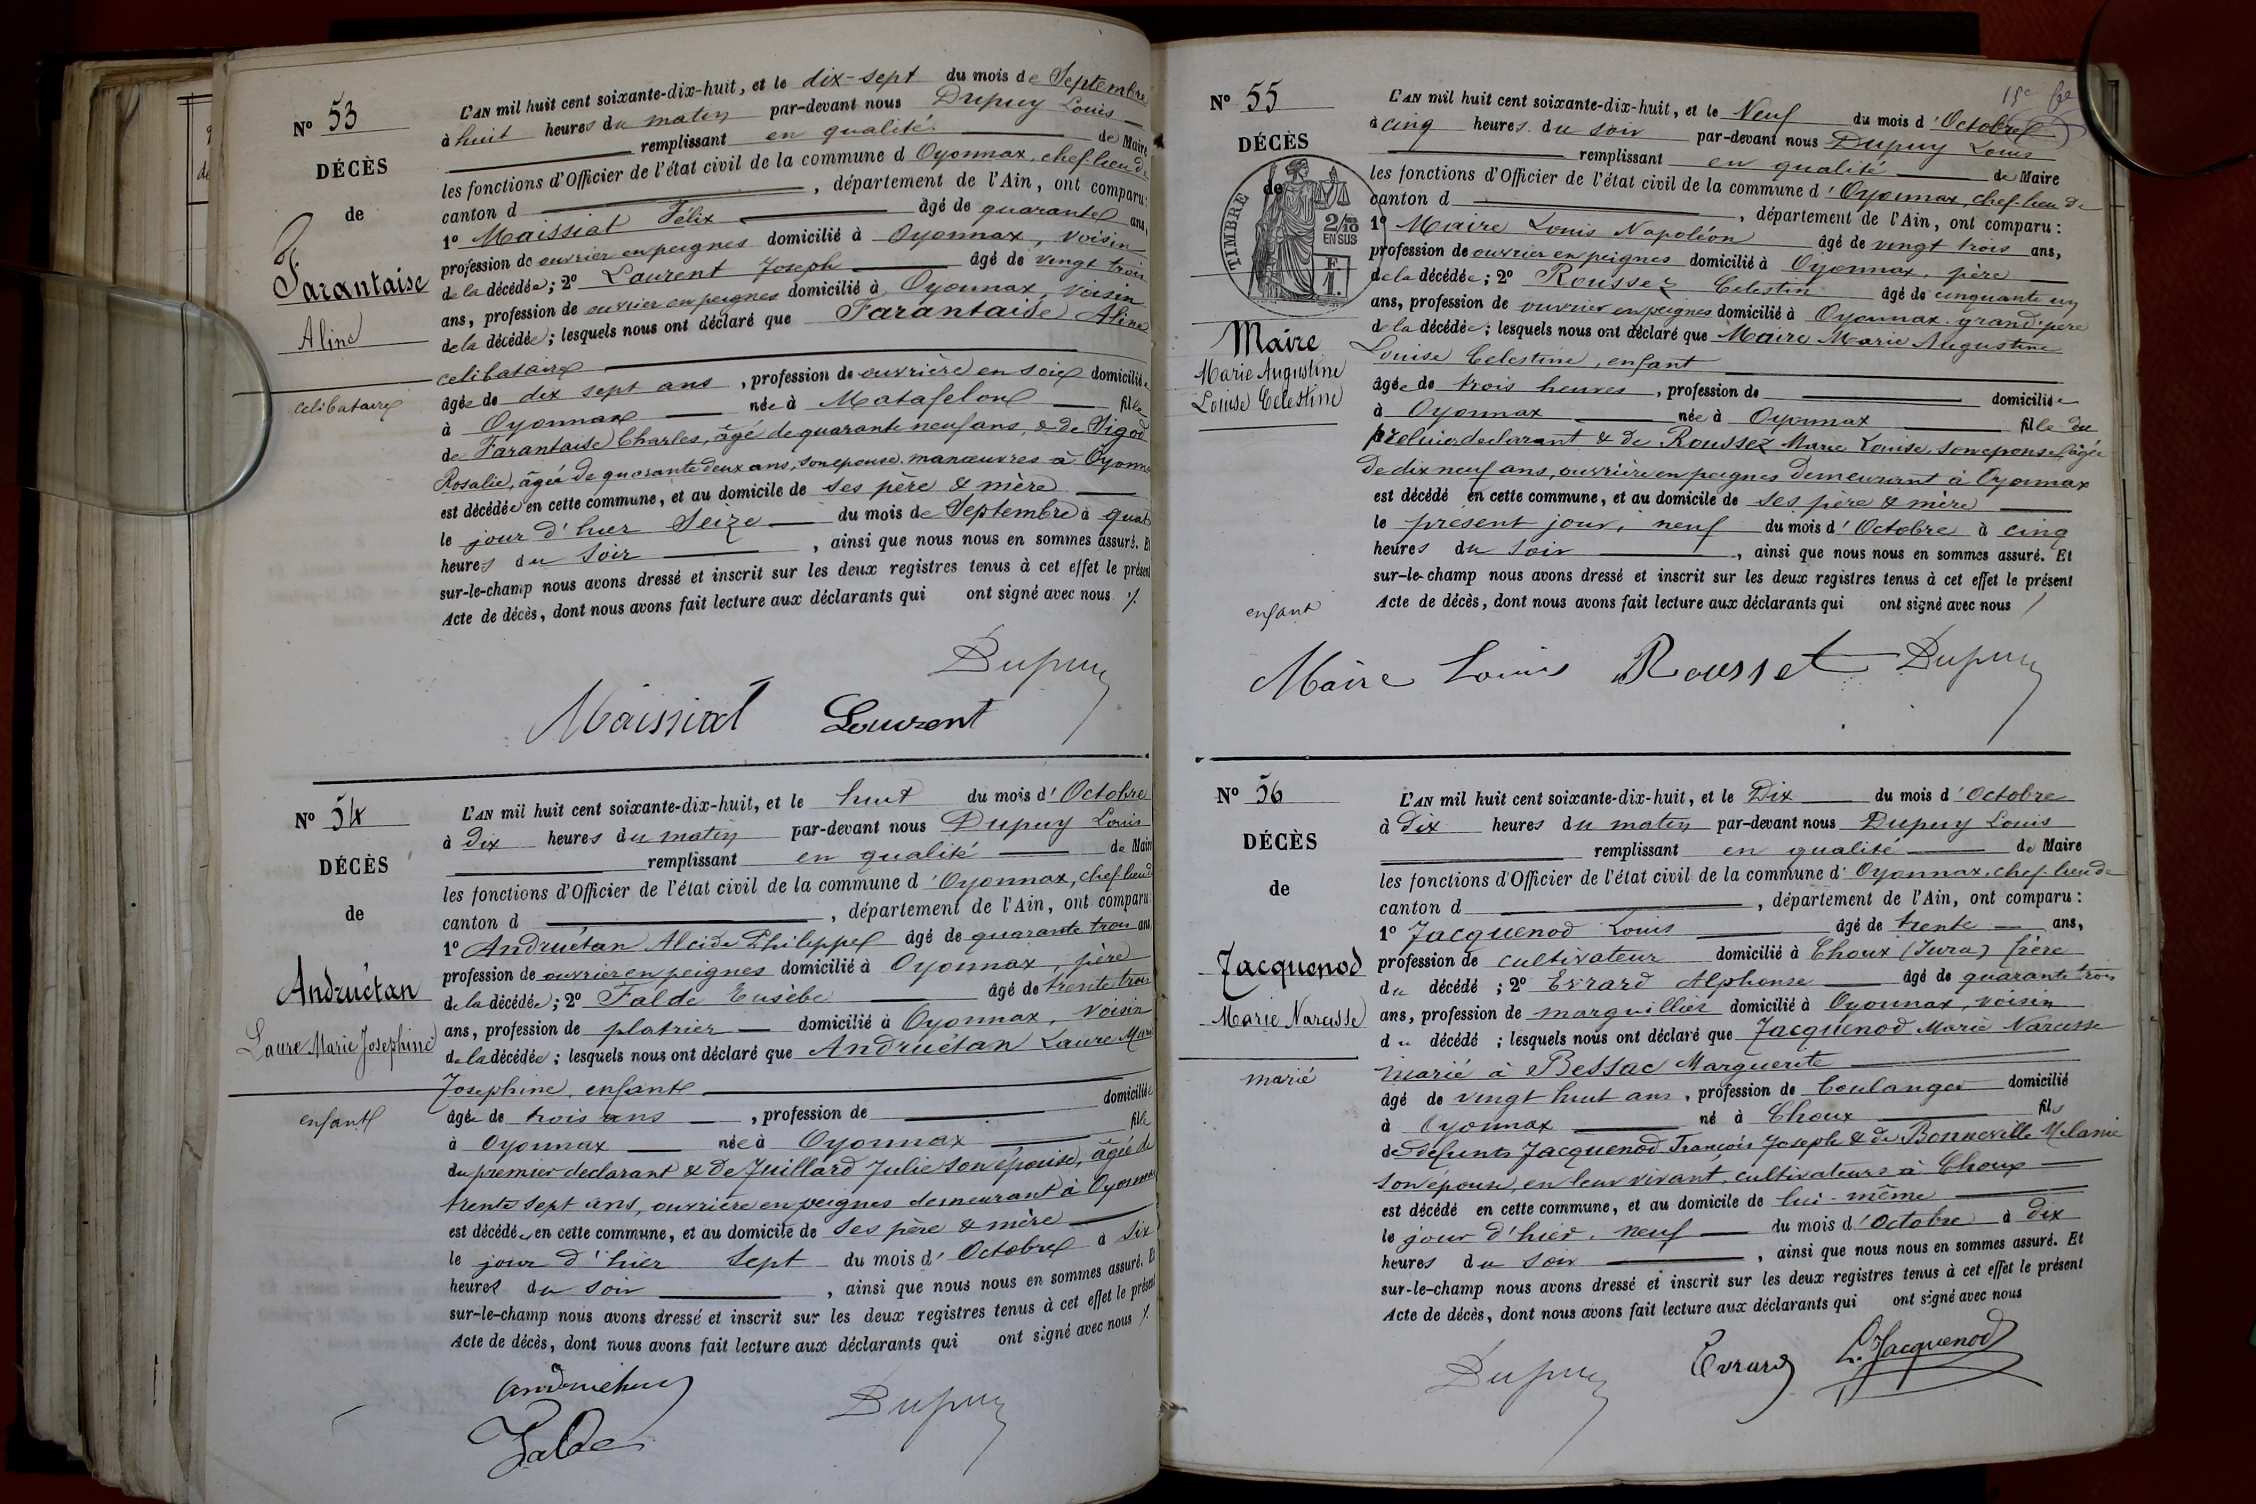 N° 53
DÉCÈS
de
Farantaise
Aline
celibataire
L'AN mil huit cent soixante-dix-huit, et le dix-sept du mois de Septembre
à huit heures du matin par-devant nous Dupuy Louis
remplissant en qualité de Maire
les fonctions d'Officier de l'état civil de la commune d Oyonnax, chef lieu de
canton d , département de l'Ain, ont comparu:
1° Maissiat Félix âgé de quarante ans,
profession de ouvrier en peignes domicilié à Oyonnax, voisin
de la décédée; 2° Laurent Joseph âgé de vingt trois
ans, profession de ouvrier en peignes domicilié à Oyonnax, voisin
de la décédée; lesquels nous ont déclaré que Farantaise Aline
celibataire
âgée de dix sept ans, profession de ouvrière en soie domiciliée
à Oyonnax née à Matafelon fille
de Farantaise Charles, âgé de quarante neuf ans, & de Sigod
Rosalie, âgée de quarante deux ans, son epouse, manœuvres à Oyonnax
est décédée en cette commune, et au domicile de ses père & mère
le jour d'hier Seize du mois de Septembre à quatre
heures du soir , ainsi que nous nous en sommes assuré. Et
sur-le-champ nous avons dressé et inscrit sur les deux registres tenus à cet effet le présent
Acte de décès, dont nous avons fait lecture aux déclarants qui ont signé avec nous ./.
Dupuy
Maissiat Laurent
N° 54
DÉCÈS
de
Andruétan
Laure Marie Josephine
enfant
L'AN mil huit cent soixante-dix-huit, et le huit du mois d'Octobre
à dix heures du matin par-devant nous Dupuy Louis
remplissant en qualité de Maire
les fonctions d'Officier de l'état civil de la commune d'Oyonnax, chef lieu de
canton d , département de l'Ain, ont comparu:
1° Andruétan Alcide Philippe âgé de quarante trois ans
profession de ouvrier en peignes domicilié à Oyonnax, père
de la décédée; 2° Falde Eusèbe âgé de trente trois
ans, profession de platrier domicilié à Oyonnax, voisin
de la décédée; lesquels nous ont déclaré que Andruétan Laure Marie
Josephine, enfant
âgée de trois ans , profession de domiciliée
à Oyonnax née à Oyonnax fille
du premier declarant & de Juillard Julie son épouse, âgée de
trente sept ans, ouvrière en peignes demeurant à Oyonnax
est décédée en cette commune, et au domicile de ses père & mère
le jour d'hier Sept du mois d'Octobre à six
heures du soir , ainsi que nous nous en sommes assuré. Et
sur-le-champ nous avons dressé et inscrit sur les deux registres tenus à cet effet le présent
Acte de décès, dont nous avons fait lecture aux déclarants qui ont signé avec nous ./.
Dupuy
Falde
N° 55
DÉCÈS
de
TIMBRE
2/10
EN SUS
Maire
Marie Augustine
Louise Celestine
enfant
L'AN mil huit cent soixante-dix-huit, et le Neuf du mois d'Octobre
à cinq heures du soir par-devant nous Dupuy Louis
remplissant en qualité de Maire
les fonctions d'Officier de l'état civil de la commune d'Oyonnax, chef-lieu de
canton d , département de l'Ain, ont comparu:
1° Maire Louis Napoléon âgé de vingt trois ans,
profession de ouvrier en peignes domicilié à Oyonnax, père
de la décédée; 2° Roussez Celestin âgé de cinquante un
ans, profession de ouvrier en peignes domicilié à Oyonnax, grand'père
de la décédée; lesquels nous ont déclaré que Maire Marie Augustine
Louise Celestine, enfant
âgée de trois heures , profession de domiciliée
à Oyonnax née à Oyonnax fille du
premier declarant & de Roussez Marie Louise, son epouse, âgée
de dix neuf ans, ouvrière en peignes demeurant à Oyonnax
est décédé en cette commune, et au domicile de ses père & mère
le present jour, neuf du mois d'Octobre à cinq
heures du soir , ainsi que nous nous en sommes assuré. Et
sur-le-champ nous avons dressé et inscrit sur les deux registres tenus à cet effet le présent
Acte de décès, dont nous avons fait lecture aux déclarants qui ont signé avec nous /
Maire Louis Rousset Dupuy
N° 56
DÉCÈS
de
Jacquenod
Marie Narcisse
marié
L'AN mil huit cent soixante-dix-huit, et le Dix du mois d'Octobre
à dix heures du matin par-devant nous Dupuy Louis
remplissant en qualité de Maire
les fonctions d'Officier de l'état civil de la commune d'Oyonnax, chef-lieu de
canton d , département de l'Ain, ont comparu:
1° Jacquenod Louis âgé de trente ans,
profession de cultivateur domicilié à Choux (Jura) frère
du décédé; 2° Evrard Alphonse âgé de quarante trois
ans, profession de marguillier domicilié à Oyonnax, voisin
du décédé; lesquels nous ont déclaré que Jacquenod Marie Narcisse
marié à Bessac Marguerite
âgé de vingt huit ans, profession de boulanger domicilié
à Oyonnax né à Choux fils
de défunts Jacquenod François Joseph & de Bonneville Melanie
son épouse, en leur vivant, cultivateurs à Choux
est décédé en cette commune, et au domicile de lui-même
le jour d'hier, neuf du mois d'Octobre à dix
heures du soir , ainsi que nous nous en sommes assuré. Et
sur-le-champ nous avons dressé et inscrit sur les deux registres tenus à cet effet le présent
Acte de décès, dont nous avons fait lecture aux déclarants qui ont signé avec nous
Dupuy Evrard L. Jacquenod